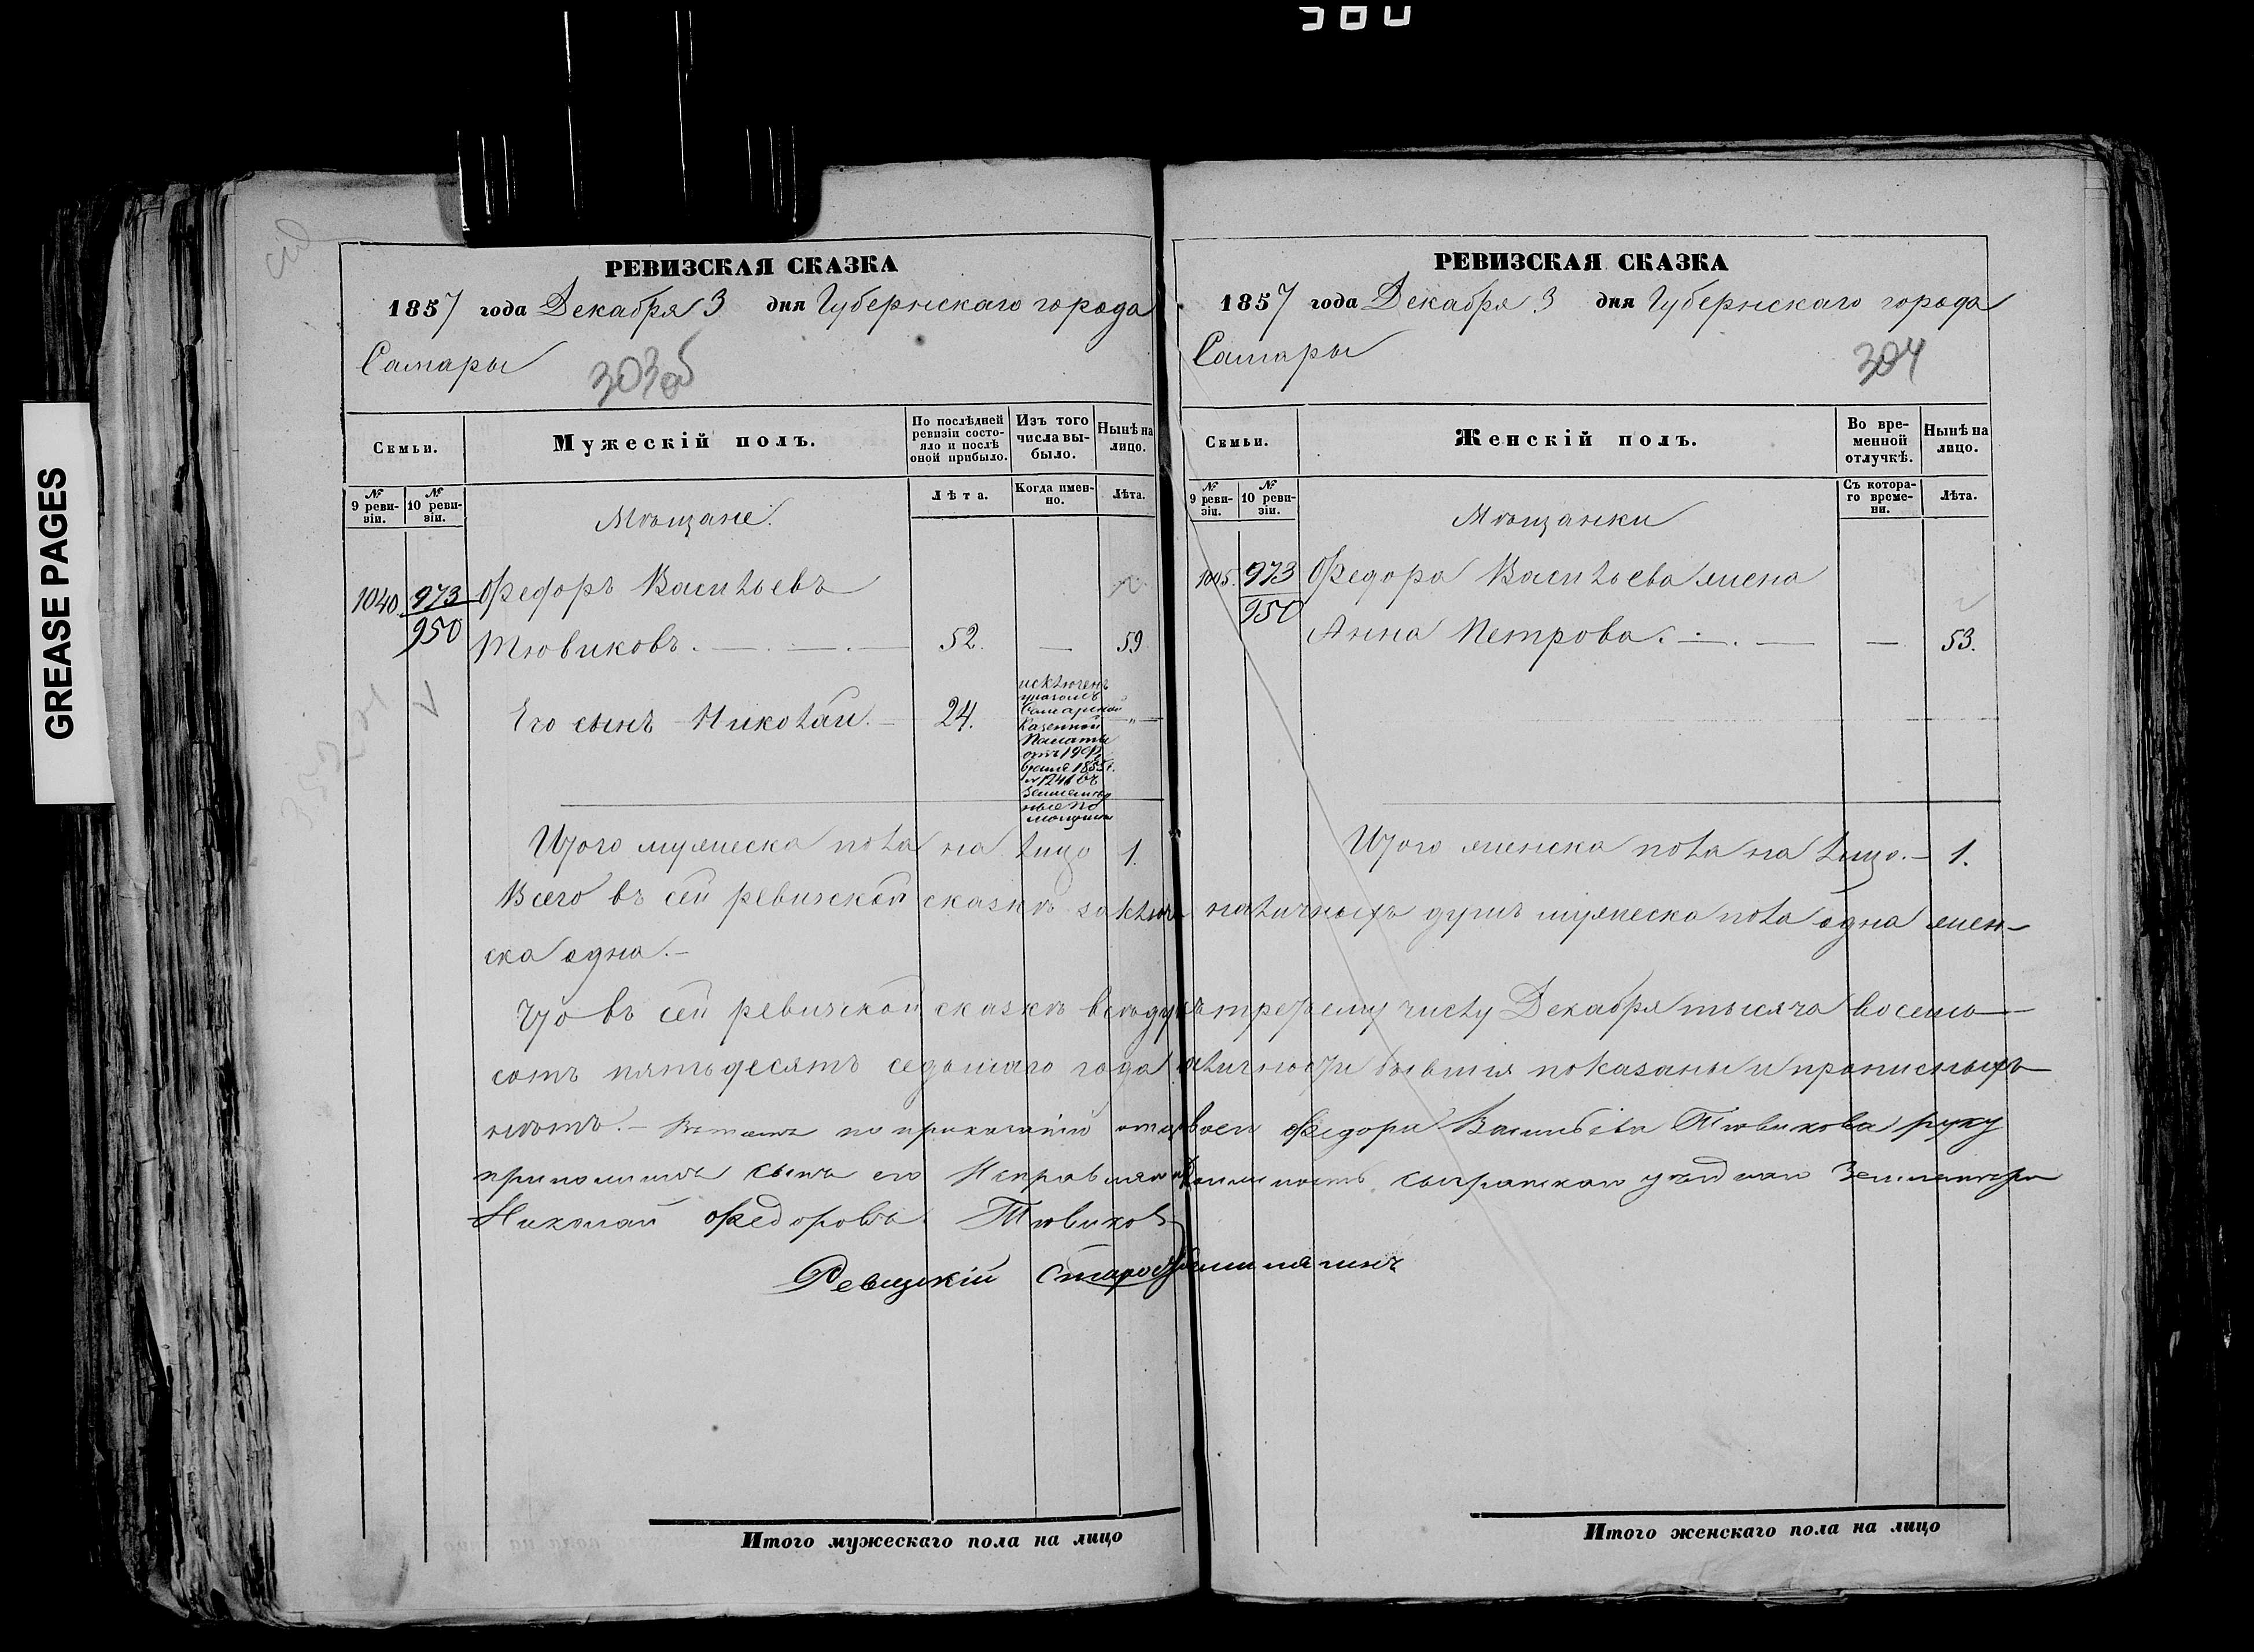 380
GREASE PAGES
РЕВИЗСКАЯ СКАЗКА
1857 года Декабря 3 дня Губернскаго города
Самары
303об
Семьи.
Мужескій полъ.
По послѣдней ревизіи состояло и послѣ оной прибыло.
Изъ того числа выбыло.
Нынѣ на лицо.
№ 9 ревизіи.
№ 10 ревизіи.
Мѣщане.
Лѣта.
Когда именно.
Лѣта.
1040 973 Федоръ Васильевъ
950 Тювиковъ. 52. — 59
Его сынъ Николай. 24. исключенъ указомъ Самарской Казенной Палаты отъ 19 1855 г. № 1241 въ "
Итого мужеска пола на лицо 1.
РЕВИЗСКАЯ СКАЗКА
1857 года Декабря 3 дня Губернскаго города
Самары
304
Семьи.
Женскій полъ.
Во временной отлучкѣ.
Нынѣ на лицо.
№ 9 ревизіи.
№ 10 ревизіи.
Мѣщанки
Съ котораго времени.
Лѣта.
973 Федора Васильева жена
950 Анна Петрова. — 53.
Итого женска пола на лицо. — 1.
Всего въ сей ревизской сказкѣ наличныхъ душъ мужеска пола одна жен-
ска одна. —
Что въ сей ревизской сказкѣ третьему числу Декабря тысяча восемь-
сотъ пятьдесятъ седьмаго года бывшія показаны и прописныхъ
нѣтъ. — по приказанію Федора Васильева Тювикова руку
приложилъ сынъ его уѣздной
Николай Федоровъ Тювиковъ
Ревизскій
Итого мужескаго пола на лицо
Итого женскаго пола на лицо